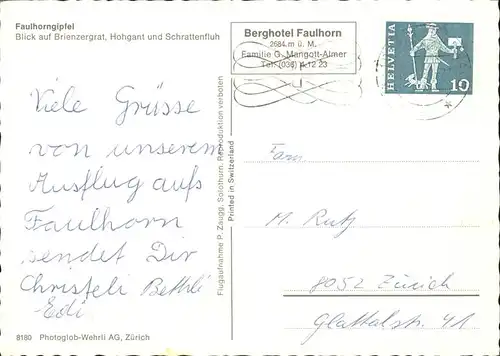 Faulhorngipfel
Blick auf Brienzergrat, Hohgant und Schrattenfluh
Viele Grüsse
von unserem
Ausflug aufs
Faulhorn
sendet Dir
Christeli Bethli
Edi
8180 Photoglob-Wehrli AG, Zürich
Flugaufnahme P. Zaugg, Solothurn. Reproduktion verboten
Printed in Switzerland
Berghotel Faulhorn
2684 m ü. M.
Familie G. Mangott-Almer
Tel. (036) 4 12 23
HELVETIA
10
Fam.
M. Rutz
8052 Zürich
Glattalstr. 41